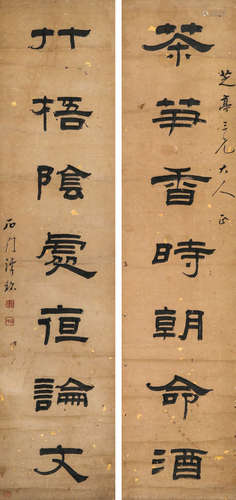 茶笋香時朝命酒
芝亭三兄大人正
竹梧陰處夜論文
石門